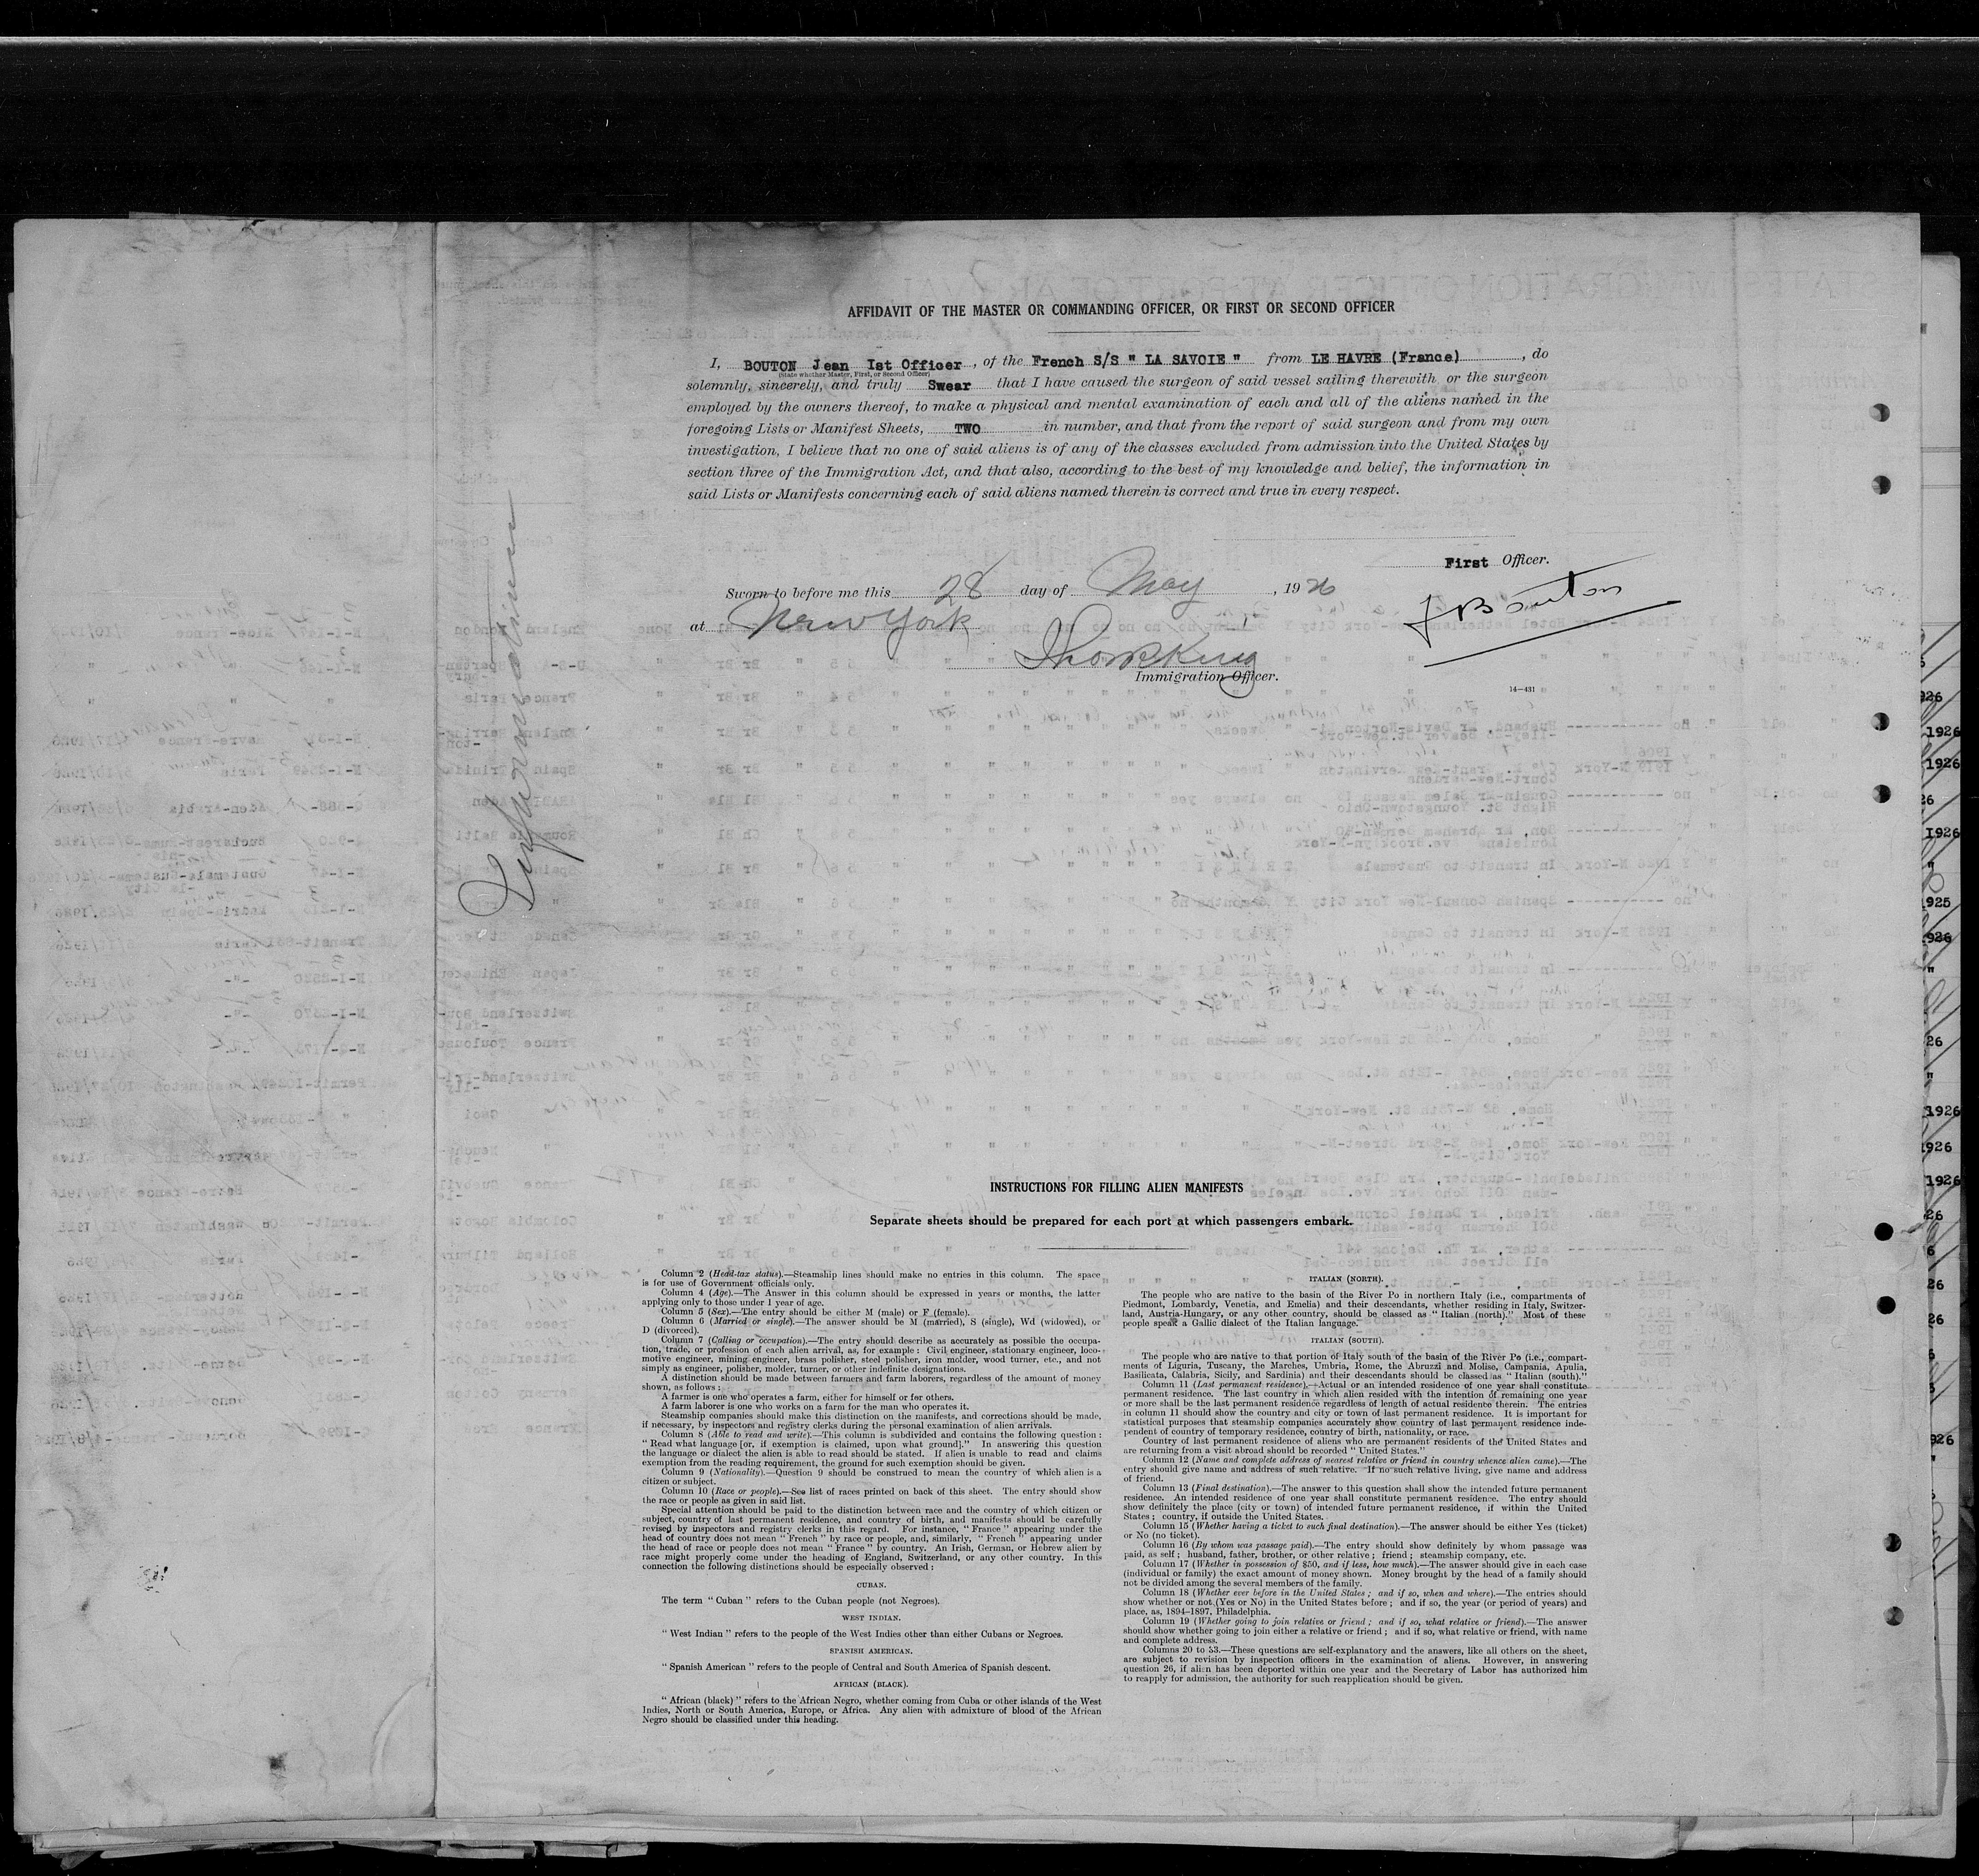 AFFIDAVIT OF THE MASTER OR COMMANDING OFFICER, OR FIRST OR SECOND OFFICER
I, BOUTON Jean Ist Officer, of the French S/S " LA SAVOIE " from LE HAVRE (France), do
(State whether Master, First, or Second Officer)
solemnly, sincerely, and truly Swear that I have caused the surgeon of said vessel sailing therewith, or the surgeon
employed by the owners thereof, to make a physical and mental examination of each and all of the aliens named in the
foregoing Lists or Manifest Sheets, TWO in number, and that from the report of said surgeon and from my own
investigation, I believe that no one of said aliens is of any of the classes excluded from admission into the United States by
section three of the Immigration Act, and that also, according to the best of my knowledge and belief, the information in
said Lists or Manifests concerning each of said aliens named therein is correct and true in every respect.
First Officer.
J Bouton
Sworn to before me this 28 day of May, 1926
at New York
Immigration Officer.
14—431
INSTRUCTIONS FOR FILLING ALIEN MANIFESTS
Separate sheets should be prepared for each port at which passengers embark.
Column 2 (Head-tax status).—Steamship lines should make no entries in this column. The space
is for use of Government officials only.
Column 4 (Age).—The Answer in this column should be expressed in years or months, the latter
applying only to those under 1 year of age.
Column 5 (Sex).—The entry should be either M (male) or F (female).
Column 6 (Married or single).—The answer should be M (married), S (single), Wd (widowed), or
D (divorced).
Column 7 (Calling or occupation).—The entry should describe as accurately as possible the occupa-
tion, trade, or profession of each alien arrival, as, for example: Civil engineer, stationary engineer, loco-
motive engineer, mining engineer, brass polisher, steel polisher, iron molder, wood turner, etc., and not
simply as engineer, polisher, molder, turner, or other indefinite designations.
A distinction should be made between farmers and farm laborers, regardless of the amount of money
shown, as follows:
A farmer is one who operates a farm, either for himself or for others.
A farm laborer is one who works on a farm for the man who operates it.
Steamship companies should make this distinction on the manifests, and corrections should be made,
if necessary, by inspectors and registry clerks during the personal examination of alien arrivals.
Column 8 (Able to read and write).—This column is subdivided and contains the following question:
" Read what language [or, if exemption is claimed, upon what ground]." In answering this question
the language or dialect the alien is able to read should be stated. If alien is unable to read and claims
exemption from the reading requirement, the ground for such exemption should be given.
Column 9 (Nationality).—Question 9 should be construed to mean the country of which alien is a
citizen or subject.
Column 10 (Race or people).—See list of races printed on back of this sheet. The entry should show
the race or people as given in said list.
Special attention should be paid to the distinction between race and the country of which citizen or
subject, country of last permanent residence, and country of birth, and manifests should be carefully
revised by inspectors and registry clerks in this regard. For instance, " France " appearing under the
head of country does not mean " French " by race or people, and, similarly, " French " appearing under
the head of race or people does not mean " France " by country. An Irish, German, or Hebrew alien by
race might properly come under the heading of England, Switzerland, or any other country. In this
connection the following distinctions should be especially observed:
CUBAN.
The term " Cuban " refers to the Cuban people (not Negroes).
WEST INDIAN.
" West Indian " refers to the people of the West Indies other than either Cubans or Negroes.
SPANISH AMERICAN.
" Spanish American " refers to the people of Central and South America of Spanish descent.
AFRICAN (BLACK).
" African (black) " refers to the African Negro, whether coming from Cuba or other islands of the West
Indies, North or South America, Europe, or Africa. Any alien with admixture of blood of the African
Negro should be classified under this heading.
ITALIAN (NORTH).
The people who are native to the basin of the River Po in northern Italy (i.e., compartments of
Piedmont, Lombardy, Venetia, and Emelia) and their descendants, whether residing in Italy, Switzer-
land, Austria-Hungary, or any other country, should be classed as " Italian (north)." Most of these
people speak a Gallic dialect of the Italian language.
ITALIAN (SOUTH).
The people who are native to that portion of Italy south of the basin of the River Po (i.e., compart-
ments of Liguria, Tuscany, the Marches, Umbria, Rome, the Abruzzi and Molise, Campania, Apulia,
Basilicata, Calabria, Sicily, and Sardinia) and their descendants should be classed as " Italian (south)."
Column 11 (Last permanent residence).—Actual or an intended residence of one year shall constitute
permanent residence. The last country in which alien resided with the intention of remaining one year
or more shall be the last permanent residence regardless of length of actual residence therein. The entries
in column 11 should show the country and city or town of last permanent residence. It is important for
statistical purposes that steamship companies accurately show country of last permanent residence inde-
pendent of country of temporary residence, country of birth, nationality, or race.
Country of last permanent residence of aliens who are permanent residents of the United States and
are returning from a visit abroad should be recorded " United States."
Column 12 (Name and complete address of nearest relative or friend in country whence alien came).—The
entry should give name and address of such relative. If no such relative living, give name and address
of friend.
Column 13 (Final destination).—The answer to this question shall show the intended future permanent
residence. An intended residence of one year shall constitute permanent residence. The entry should
show definitely the place (city or town) of intended future permanent residence, if within the United
States; country, if outside the United States.
Column 15 (Whether having a ticket to such final destination).—The answer should be either Yes (ticket)
or No (no ticket).
Column 16 (By whom was passage paid).—The entry should show definitely by whom passage was
paid, as self; husband, father, brother, or other relative; friend; steamship company, etc.
Column 17 (Whether in possession of $50, and if less, how much).—The answer should give in each case
(individual or family) the exact amount of money shown. Money brought by the head of a family should
not be divided among the several members of the family.
Column 18 (Whether ever before in the United States; and if so, when and where).—The entries should
show whether or not (Yes or No) in the United States before; and if so, the year (or period of years) and
place, as, 1894–1897, Philadelphia.
Column 19 (Whether going to join relative or friend; and if so, what relative or friend).—The answer
should show whether going to join either a relative or friend; and if so, what relative or friend, with name
and complete address.
Columns 20 to 33.—These questions are self-explanatory and the answers, like all others on the sheet,
are subject to revision by inspection officers in the examination of aliens. However, in answering
question 26, if alien has been deported within one year and the Secretary of Labor has authorized him
to reapply for admission, the authority for such reapplication should be given.